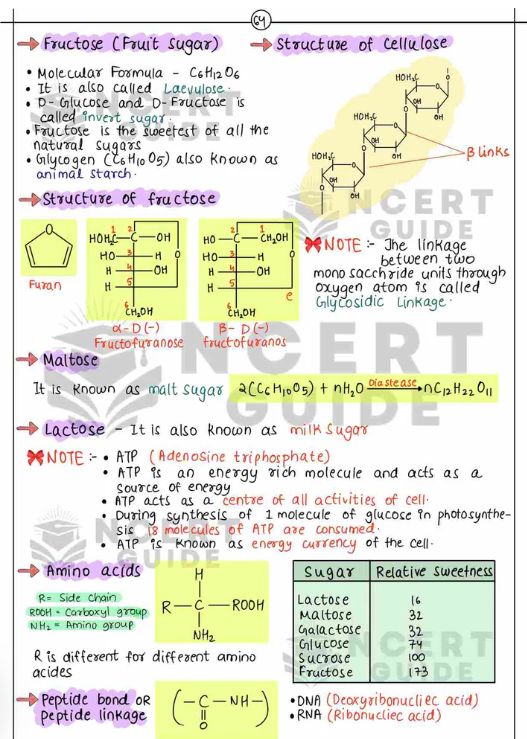 64
→ Fructose (Fruit sugar)
• Molecular Formula - C6H12O6
• It is also called Laevulose.
• D-Glucose and D-Fructose is
called invert sugar.
• Fructose is the sweetest of all the
natural sugars
• Glycogen (C6H10O5) also known as
animal starch.
→ Structure of cellulose
HOH2C
O
OH
OH
HOH2C
O
OH
OH
HOH2C
O
OH
OH
β links
→ Structure of fructose
O
Furan
1 2
HOH2C - C - OH
HO 3 H
H 4 OH
H 5
O
6
CH2OH
α-D(-)
Fructofuranose
2 1
HO - C - CH2OH
HO 3 H
H 4 OH
H 5
O
e
6
CH2OH
β- D(-)
fructofuranos
NOTE :- The linkage
between two
monosacchride units through
oxygen atom is called
Glycosidic Linkage.
→ Maltose
It is known as malt sugar 2(C6H10O5) + nH2O Diastease→ nC12H22O11
→ Lactose - It is also known as milk sugar
NOTE :- • ATP (Adenosine triphosphate)
• ATP is an energy rich molecule and acts as a
source of energy
• ATP acts as a centre of all activities of cell.
• During synthesis of 1 molecule of glucose in photosynthe-
sis 18 molecules of ATP are consumed.
• ATP is known as energy currency of the cell.
→ Amino acids
R= Side chain
ROOH = Carboxyl group
NH2 = Amino group
H
R - C - ROOH
NH2
R is different for different amino
acides
Sugar Relative sweetness
Lactose 16
Maltose 32
Galactose 32
Glucose 74
Sucrose 100
Fructose 173
→ Peptide bond OR
peptide linkage
(- C - NH -)
O
• DNA (Deoxyribonucliec acid)
• RNA (Ribonucliec acid)
NCERT
GUIDE
NCERT
GUIDE
NCERT
GUIDE
NCERT
GUIDE
NCERT
GUIDE